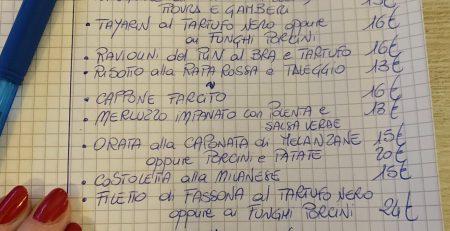 E GAMBERI 15€
• TAYARIN al TARTUFO NERO oppure 16€
ai FUNGHI PORCINI
• RAVIOLINI del PLIN al BRA e TARTUFO 16€
• RISOTTO alla RAPA ROSSA e TALEGGIO 13€
• CAPPONE FARCITO 16€
• MERLUZZO IMPANATO con POLENTA e 13€
SALSA VERDE
• ORATA alla CAPONATA di MELANZANE 15€
oppure PORCINI e PATATE 20€
• COSTOLETTA alla MILANESE 15€
• FILETTO di FASSONA al TARTUFO NERO
oppure ai FUNGHI PORCINI 24€